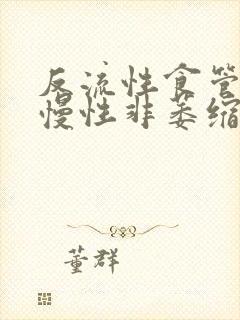 反流性食管
慢性非萎缩
董群